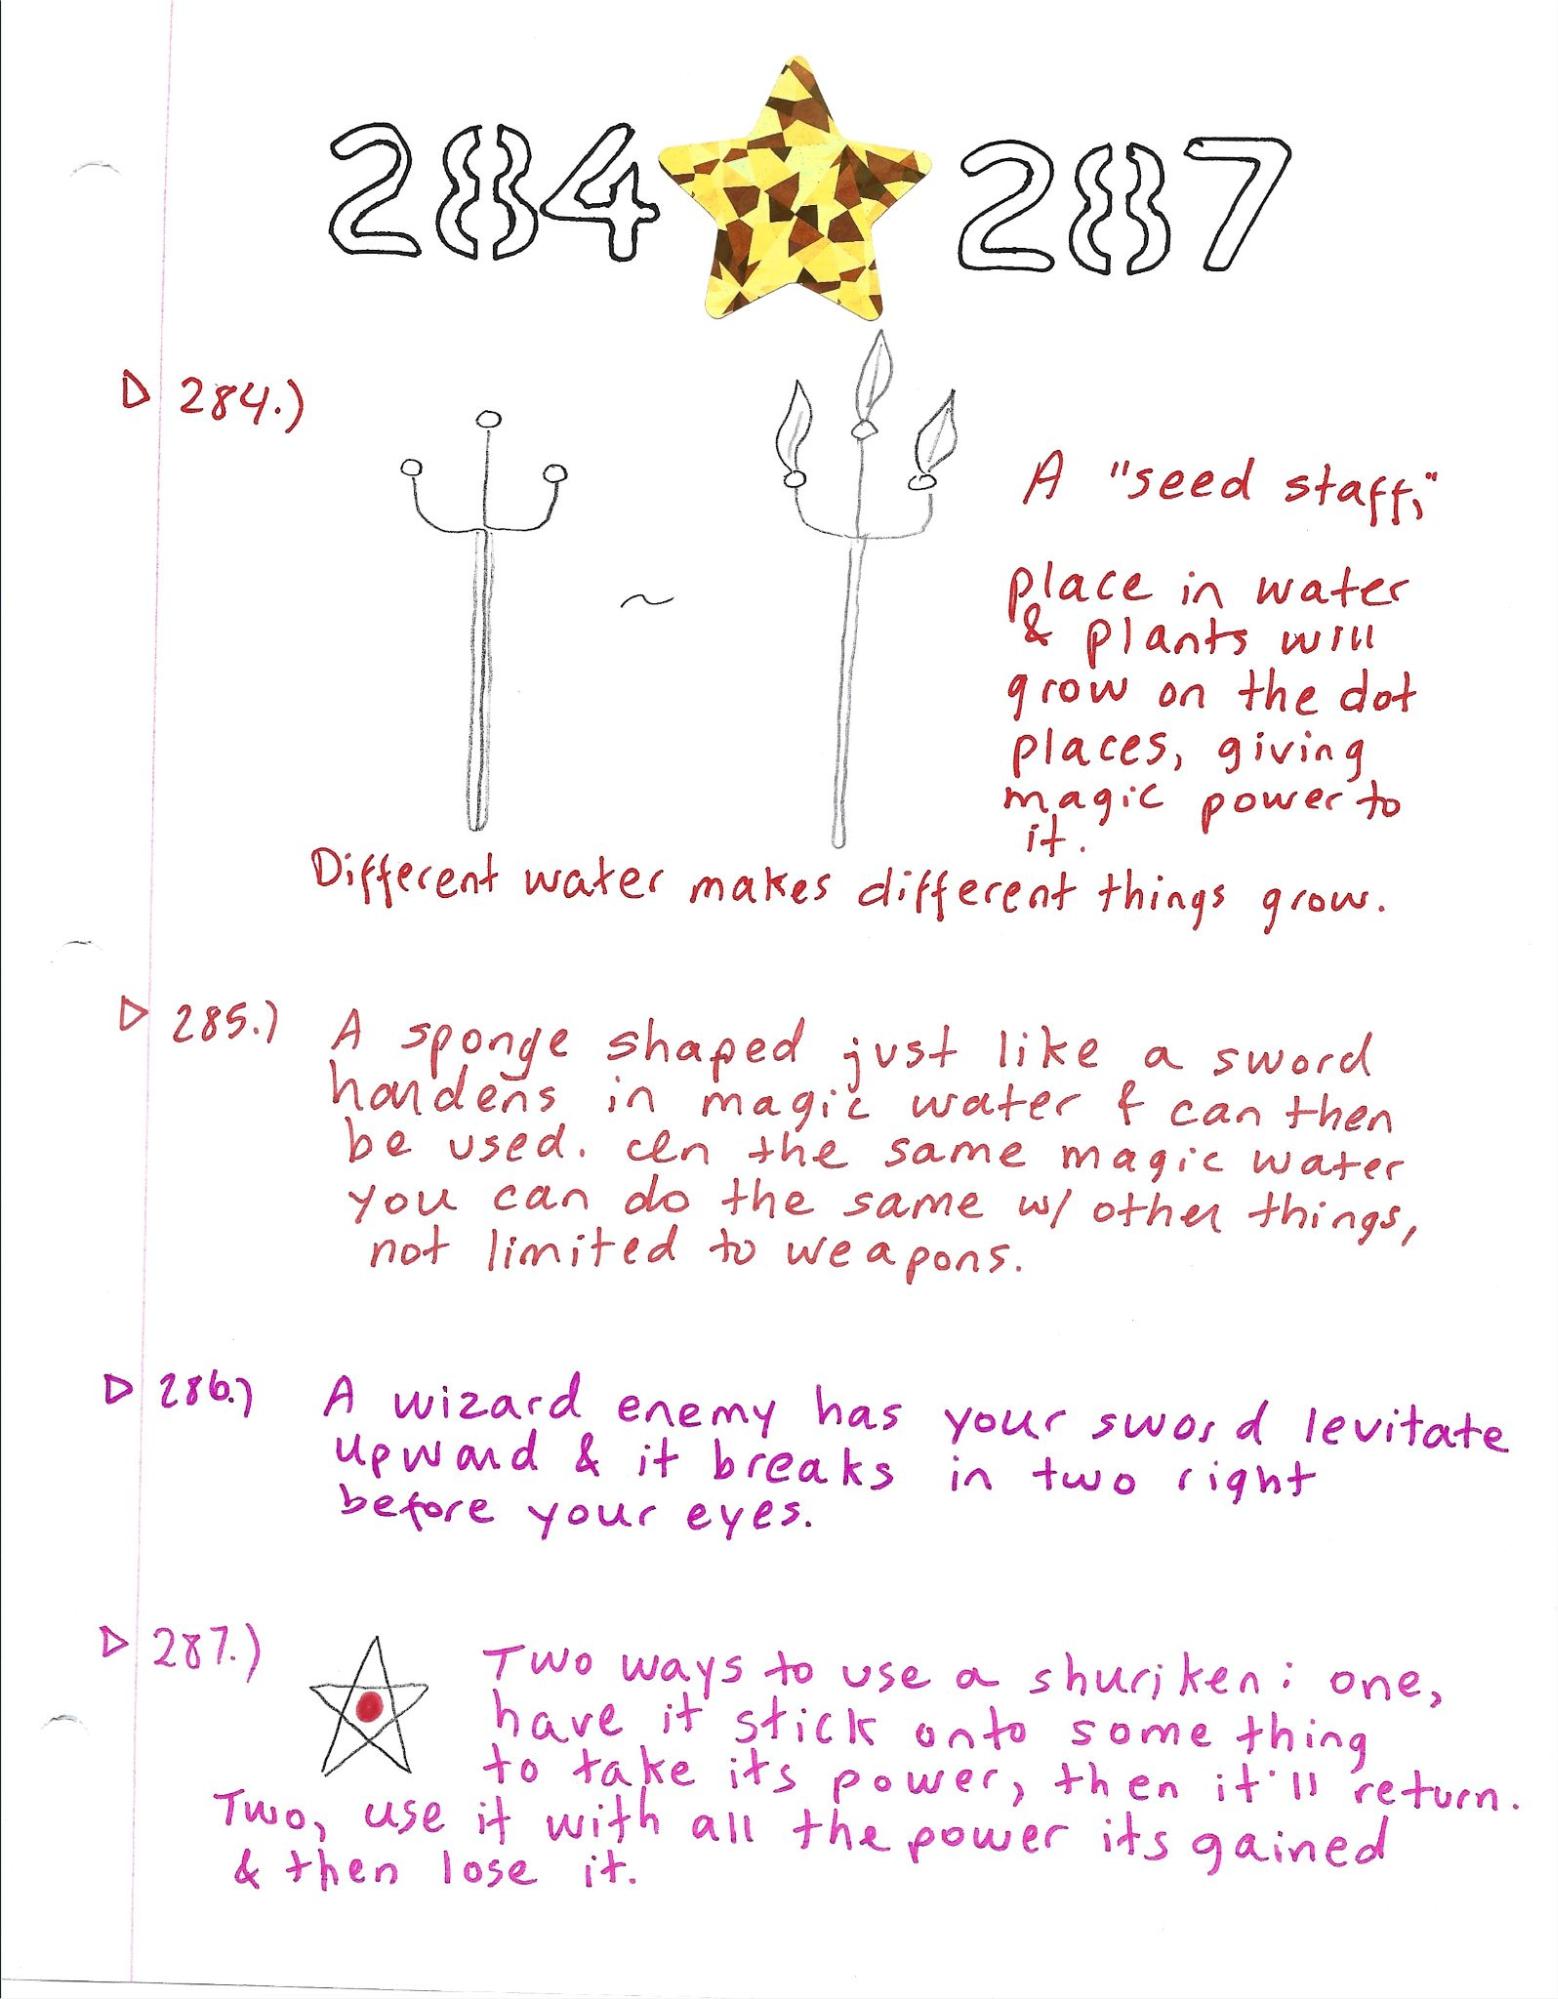 284 287
▷ 284.)
A "seed staff,"
place in water
& plants will
grow on the dot
places, giving
magic power to
it.
Different water makes different things grow.
▷ 285.) A sponge shaped just like a sword
hardens in magic water & can then
be used. In the same magic water
you can do the same w/ other things,
not limited to weapons.
▷ 286.) A wizard enemy has your sword levitate
upward & it breaks in two right
before your eyes.
▷ 287.) Two ways to use a shuriken: one,
have it stick onto something
to take its power, then it'll return.
Two, use it with all the power its gained
& then lose it.